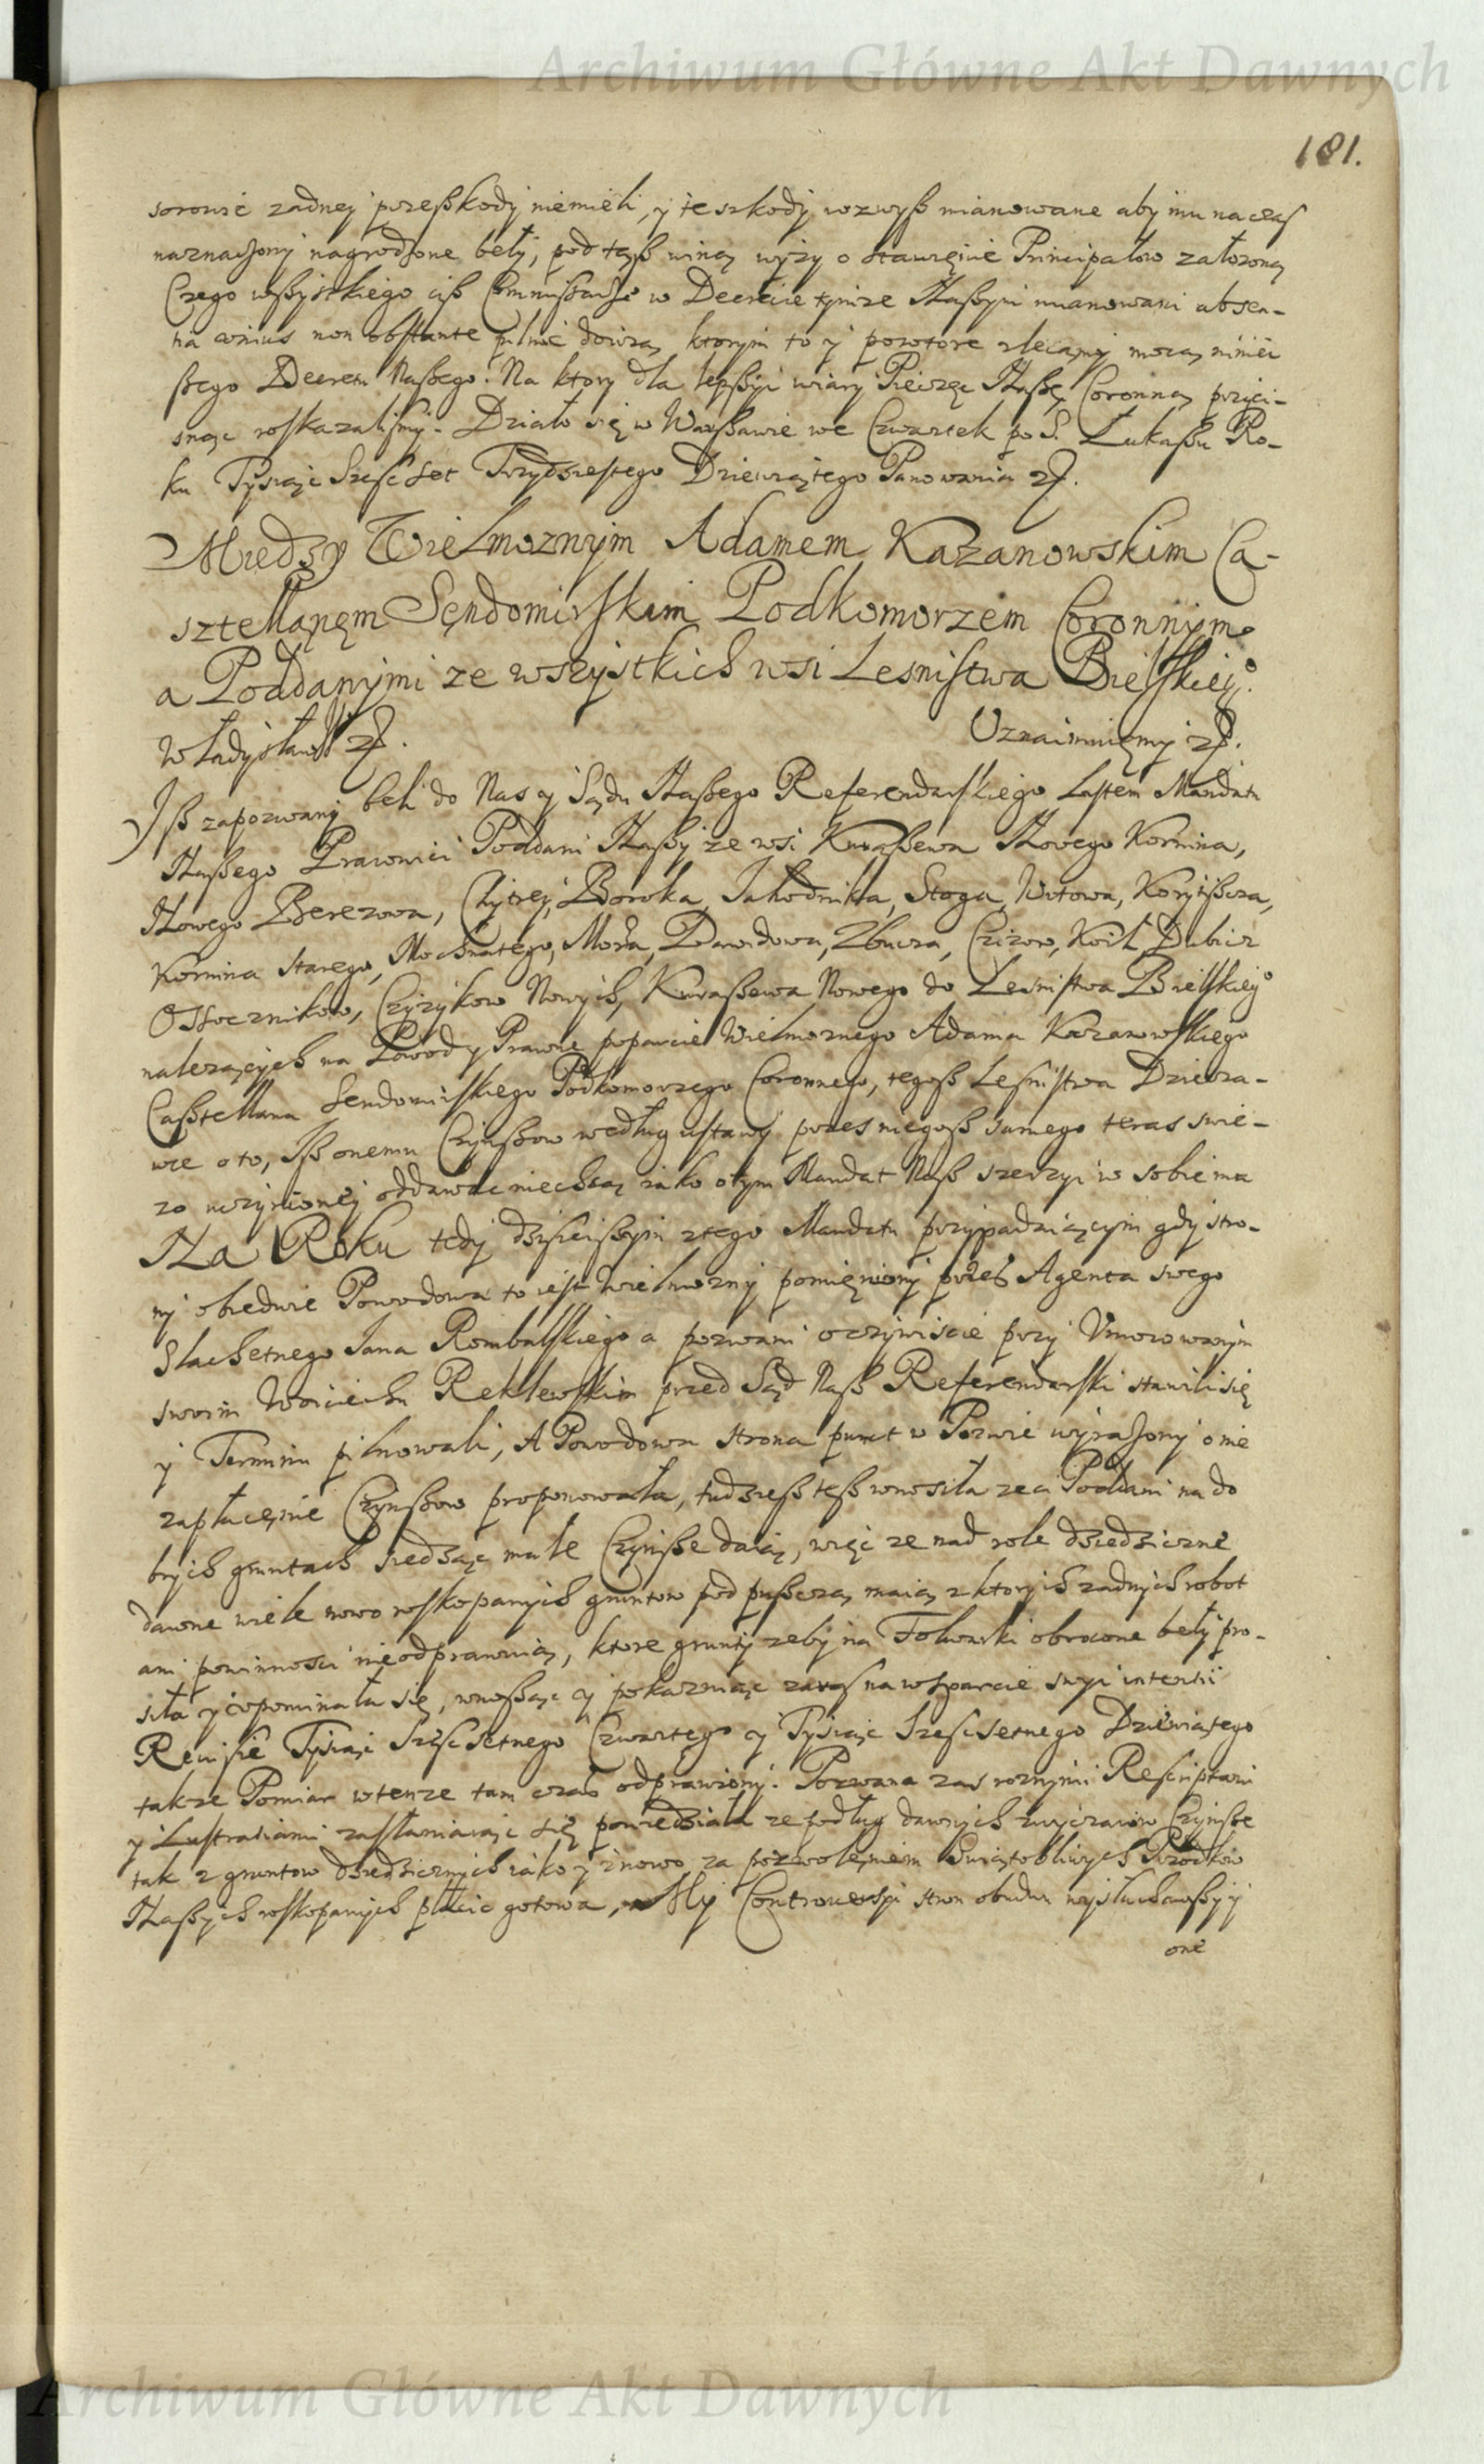 Archiwum Główne Akt Dawnych
181.
sorowie zadney przeßkody niemieli, y te szkody wzwyß mianowane aby mu na czas
naznaczony nagrodzone beły, pod tąß winą wyzy o stawięnie Principałow załozoną
Czego wßystkiego ciß Commissarze w Decrecie tymze Naßym mianowani absen-
tia unius non obstante pilnic dowizą ktorym to y powtore zlecamy mocą niniei
ßego Decretu Naßego. Na ktory dla lepßyi wiary Pieczęc Naßę Coronną przyci-
snąc roskazalismy. Działo się w Warßawie we Czwartek po S. Łukaßu Ro-
ku Tysiąc Szesc set Trzydziestego Dziewiątego Panowania
Miedzy Wielmoznym Adamem Kazanowskim Ca-
sztellanęm Sęndomirskim Podkomorzem Coronnym
a Poddanymi ze wszystkich wsi Lesnistwa Bielskieg°.
Władysław
Uznaimuięmy
Iß zapozwany beli do Nas y Sądu Naßego Referendarskiego Listem Mandatu
Naßego Pracowici Poddani Naßy ze wsi Kuraßewa Nowego Kornina,
Nowego Berezowa, Chytrey, Boroka, Jahodnika, Stoga, Wotowa, Korytißcza,
Kornina starego, Mochnatego, Mora, Dawidowa, Zbucza, Czizow, Koił, Dubicz
Ossocznikow, Czyzykow Nowych, Kuraßewa Nowego do Lesnistwa Bielskieg°
nalezących na Powod y Prawne poparcie Wielmoznego Adama Kazanowskiego
Caßtellana Sendomirskiego Podkomorzego Coronnego, tegoß Lesnistwa Dzierza-
wce o to, Iß onemu Czynßow według ustawy przes niegoß samego teras swie-
zo uczynioney oddawac niechcą iako o tym Mandat Naß szerzyi w sobie ma
Na Roku tedy dzisieißym z tego Mandatu przypadaiącym gdy stro-
ny obiedwie Powodowa to iest Wielmozny pomięniony przes Agenta swego
Slachetnego Jana Rombalskiego a pozwani oczywiscie przy Umocowanym
swoim Woiciechu Reklewskim przed Sąd Naß Referendarski stawili się
y Terminu pilnowali, A Powodowa strona punct w Pozwie wyrazony o nie
zapłacęnie Czynßow proponowała, tudzieß teß wnosiła ze ci Poddani na do
brych gruntach siedząc małe Czynße daią, więc ze nad role dziedziczne
dawne wiele nowo roskopanych gruntow pod pußczą maią z ktorych zadnych robot
ani powinnosci nie odprawuią, ktore grunty zeby na Folwarki obrocone beły pro-
siła y upominała się, wnoßąc y pokazuiąc zaras na wsparcie swyi intencii
Rewisie Tysiąc Szescsetnego Czwartego y Tysiąc Szescsetnego Dziewiątego
takze Pomiar w tenze tam czas odprawiony. Pozwana zas roznymi Rescriptami
y Lustraciami zasłaniaiąc się powiedziała ze podług dawnych zwyczaiow Czynße
tak z gruntow dziedzicznych iako y znowo za pozwolęniem Swiątobliwych Przodkow
Naßych roskopanych płacic gotowa, My Controwersyi stron obudwu wysłuchawßy y
one
Archiwum Główne Akt Dawnych